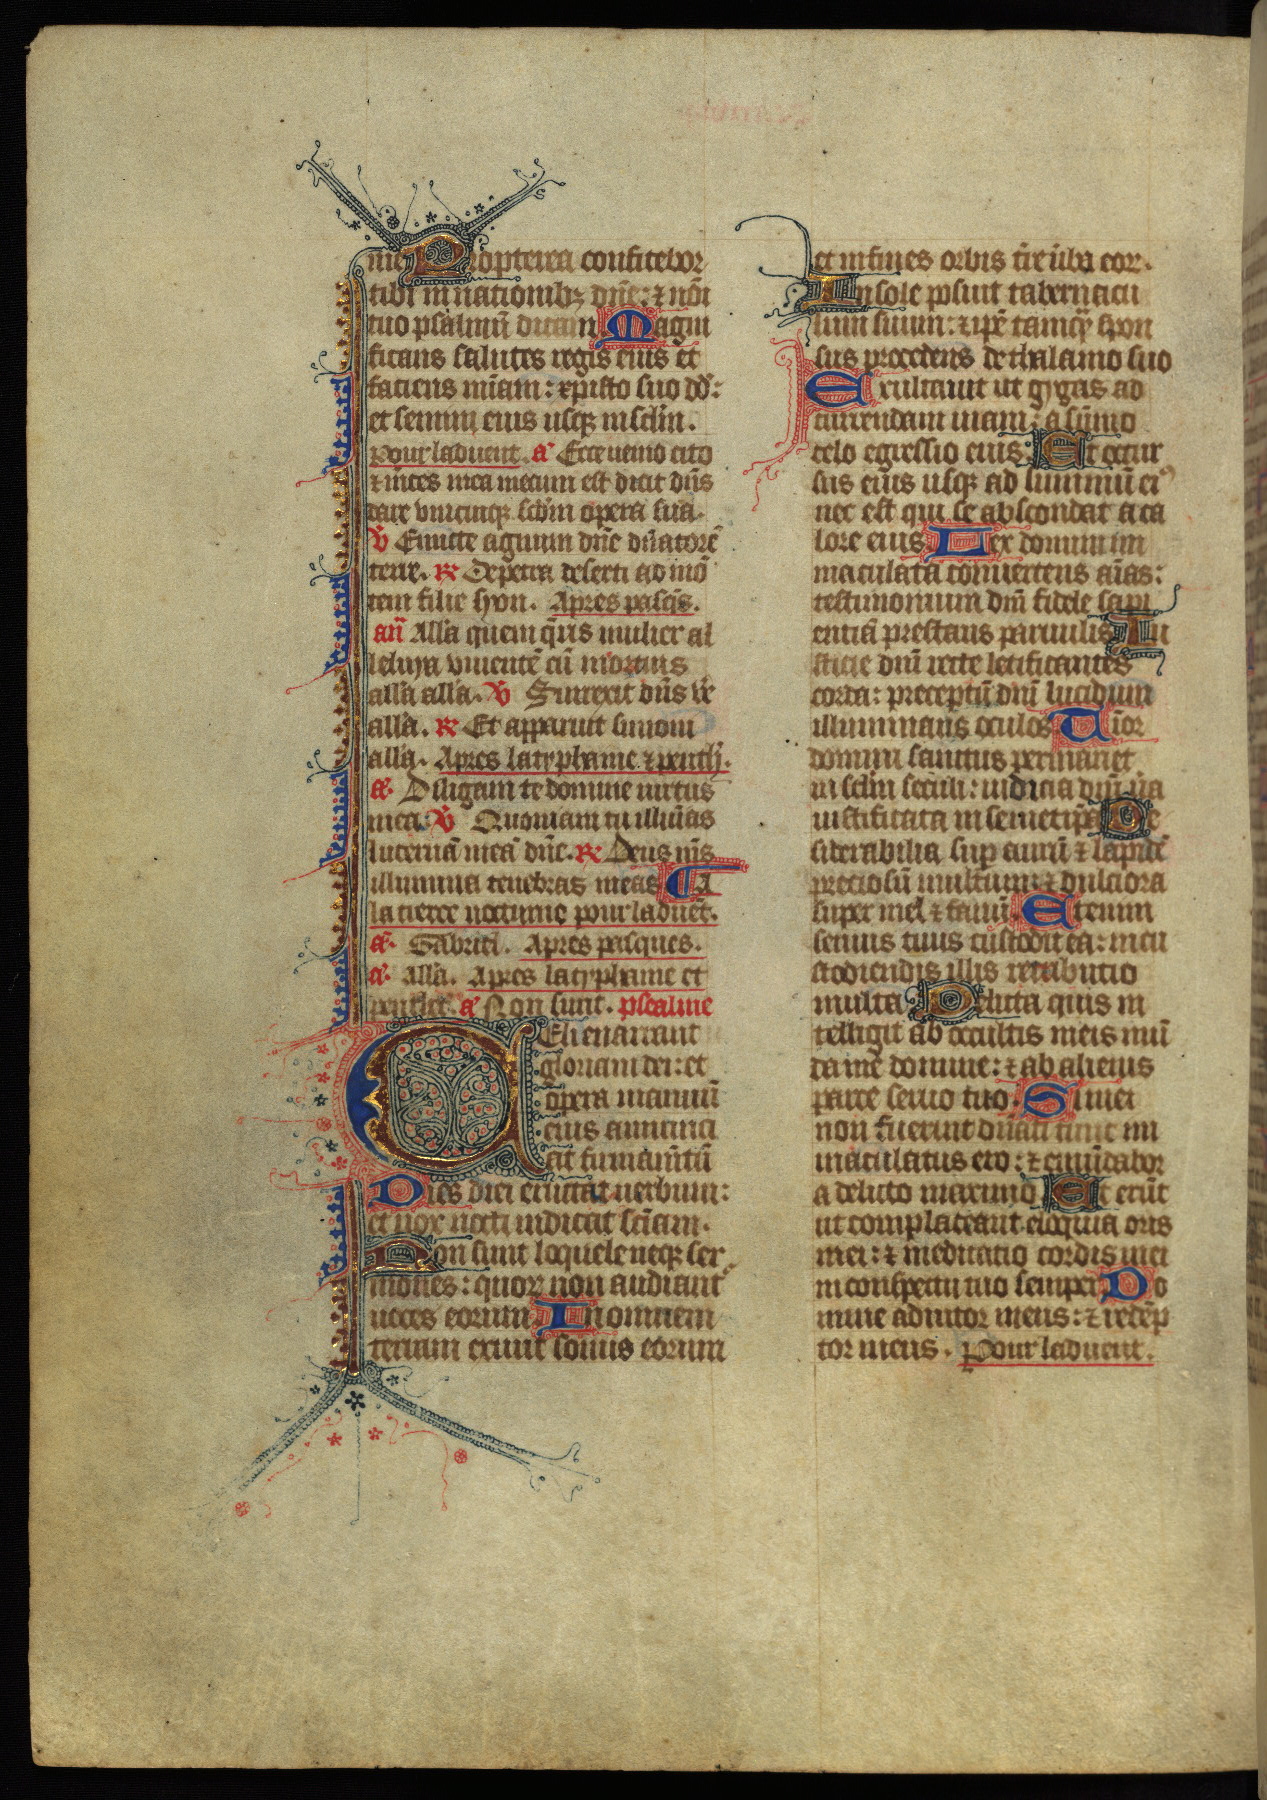 me Propterea confitebor
tibi in nationibꝫ dn̄e: ⁊ nōi
tuo psalmū dicam Magni
ficans salutes regis eius et
faciens mīam: xpisto suo dd̄:
et semini eius usqꝫ in sclm̄.
Pour laduent. a Ecce uenio cito
⁊ m̄ces mea mecum est dicit dn̄s
dare vnicuiqꝫ scdm̄ opera sua.
V̄ Emitte agnum dn̄e dn̄atorē
terre. ꝶ De petra deserti ad mō
tem filie syon. Apres pasqs̄.
an̄ All̄a quem qr̄is mulier al
leluya viuentē cū mortuis
all̄a all̄a. V̄ Surrexit dn̄s ue
all̄a. ꝶ Et apparuit simoni
all̄a. Apres latyphaine ⁊ penth.
a. Diligam te domine uirtus
mea. V̄ Quoniam tu illūias
lucernā meā dn̄e. ꝶ Deus m̄s
illumina tenebras meas A
la tierce nocturne pour laduēt.
a. Gabriel. Apres pasques.
a. All̄a. Apres latyphaine et
penthc. a Non sunt. pseaulme
Celi enarrant
gloriam dei: et
opera manuū
eius annunci
at firmamētū
Dies diei eructat uerbum:
et nox nocti indicat sciam.
Non sunt loquele neqꝫ ser
mones: quoꝝ non audiant
uoces eorum In omnem
terram exiuit sonus eorum
et in fines orbis tr̄e ūba eor.
In sole posuit tabernacu
lum suum: ⁊ ip̄e tamqͣ spon
sus procedens de thalamo suo
Exultauit ut gygas ad
currendam uiam: a sūmo
celo egressio eius Et occur
sus eius usqꝫ ad summū eiꝰ
nec est qui se abscondat a ca
lore eius Lex domini im
maculata conuertens aīas:
testimonium dn̄i fidele sapi
entiā prestans paruulis Iu
sticie dn̄i recte letificantes
corda: preceptū dn̄i lucidum
illuminans oculos Timor
domini sanctus permanet
in sclm̄ seculi: iudicia dn̄i uā
iustificata in semetip̄a De
siderabilia sup aurū ⁊ lapidē
preciosū multum: ⁊ dulciora
super mel ⁊ fauū. Etenim
seruus tuus custodit ea: in cu
stodiendis illis retributio
multa Delicta quis in
telligit ab occultis meis mū
da me domine: ⁊ ab alienis
parce seruo tuo. Si mei
non fuerint dn̄ati tunc im
maculatus ero: ⁊ emūdabor
a delicto maximo Et erūt
ut complaceant eloquia oris
mei: ⁊ meditatio cordis mei
in conspectu tuo semper Do
mine adiutor meus: ⁊ redēp
tor meus. Pour laduent.